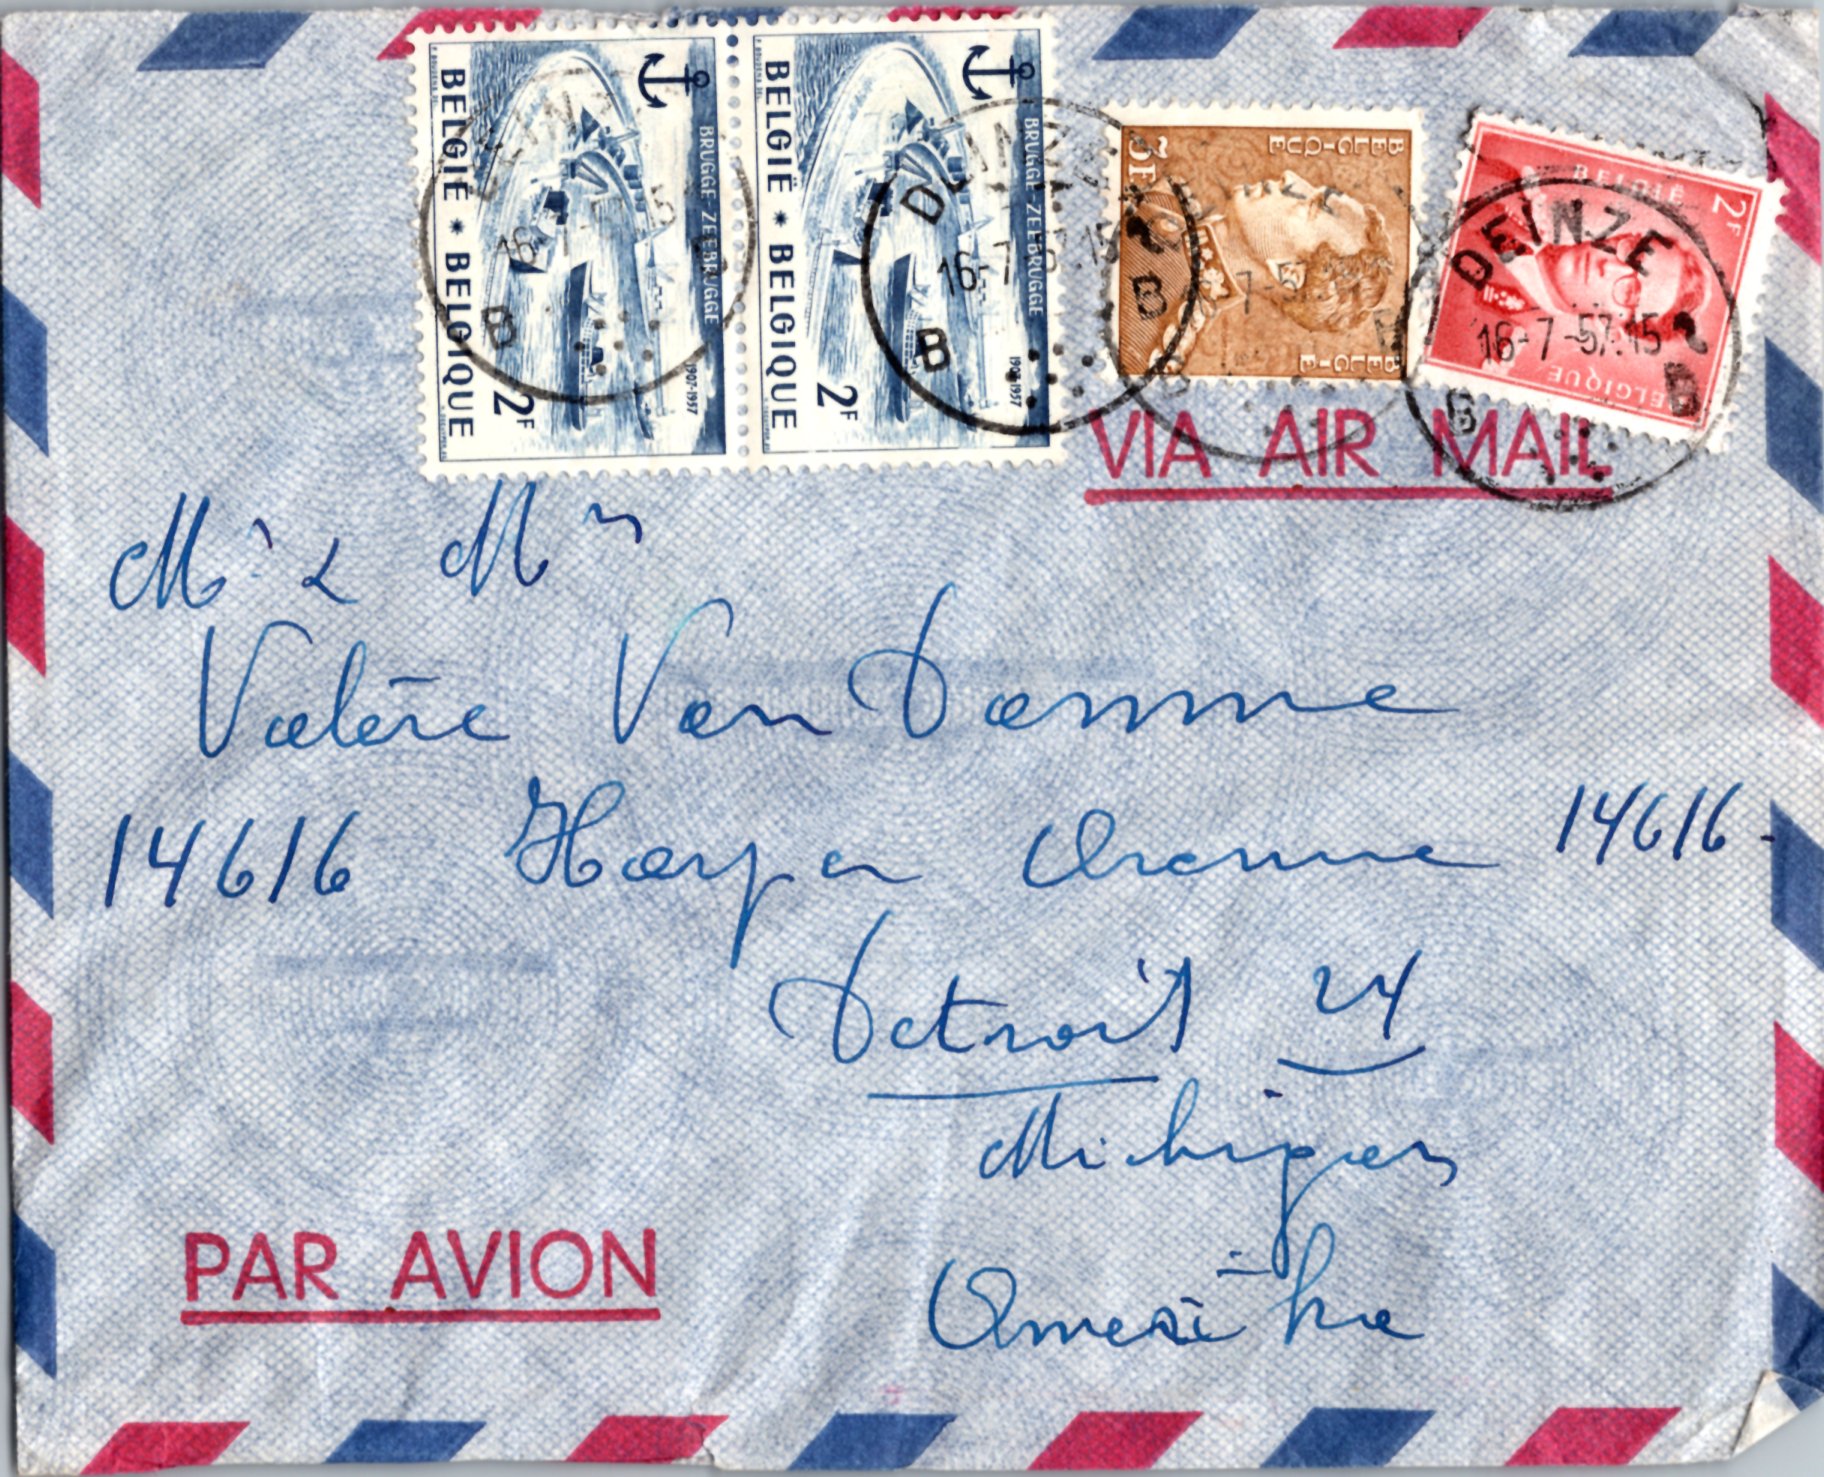 BELGIË * BELGIQUE
BRUGGE-ZEEBRUGGE
1907-1957
2F
BELGIË * BELGIQUE
BRUGGE-ZEEBRUGGE
1907-1957
2F
3F
BELGIQUE
BELGIE
2F
BELGIË
BELGIQUE
DEINZE
16-7-57.15
B B
VIA AIR MAIL
Mr & Mm
Valère Van Damme
14616 Harper Avenue 14616-
Detroit 24
Michigan
Amerika
PAR AVION